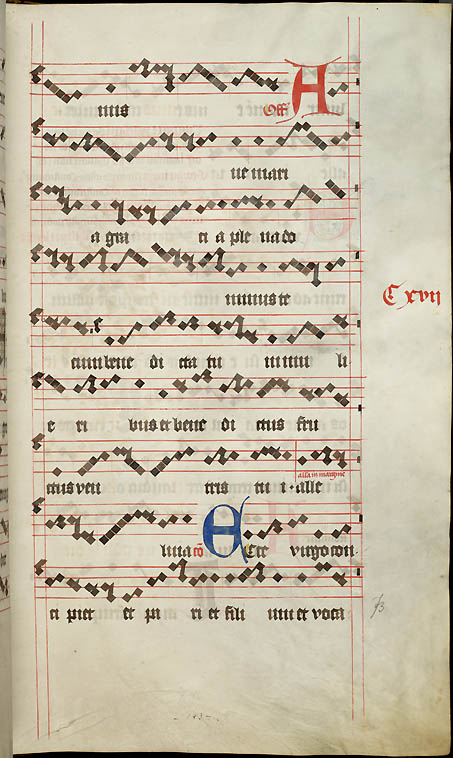 mis Off A
ue mari
a gra ti a ple na do
minus te
cum bene di cta tu in mu li
e ri bus et bene di ctus fru
alla in margine
ctus ven tris tu i · alle
luia cō Ecce virgo con
ci piet et pa ri et fili um et voca
C xvii
73
- 143 -